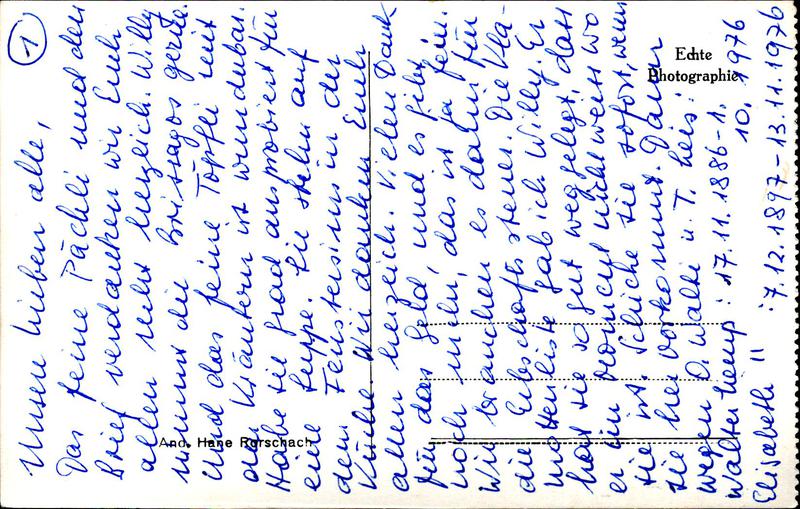 1
Unsere lieben alle,
Das feine Päckli und den
Brief verdanken wir Euch
allen recht herzlich. Willy
nimmt die Brissagos gerne.
Und das feine Töpfli mit
den Kräutern ist wunderbar.
Habe sie grad ausprobiert für
eine Suppe. Sie stehn auf
dem Fenstersims in der
Küche. Wir danken Euch
allen herzlich. Vielen Dank
für das Geld, und es gibt
noch mehr, das ist ja fein.
Wir brauchen es dann für
die Erbschaftssteuer. Die
hat sie so gut weggelegt, dass
er im Moment nicht weiss wo
sie ist. Schicke sie sofort, wenn
sie hervorkommt. Daten
wegen O. Walti u. T. Lisi:
Walter : 17.11.1886 - 1.
10. 1976
Elisabeth " : 7.12.1897 - 13.11.1976
Echte
Photographie
And. Hane Rorschach